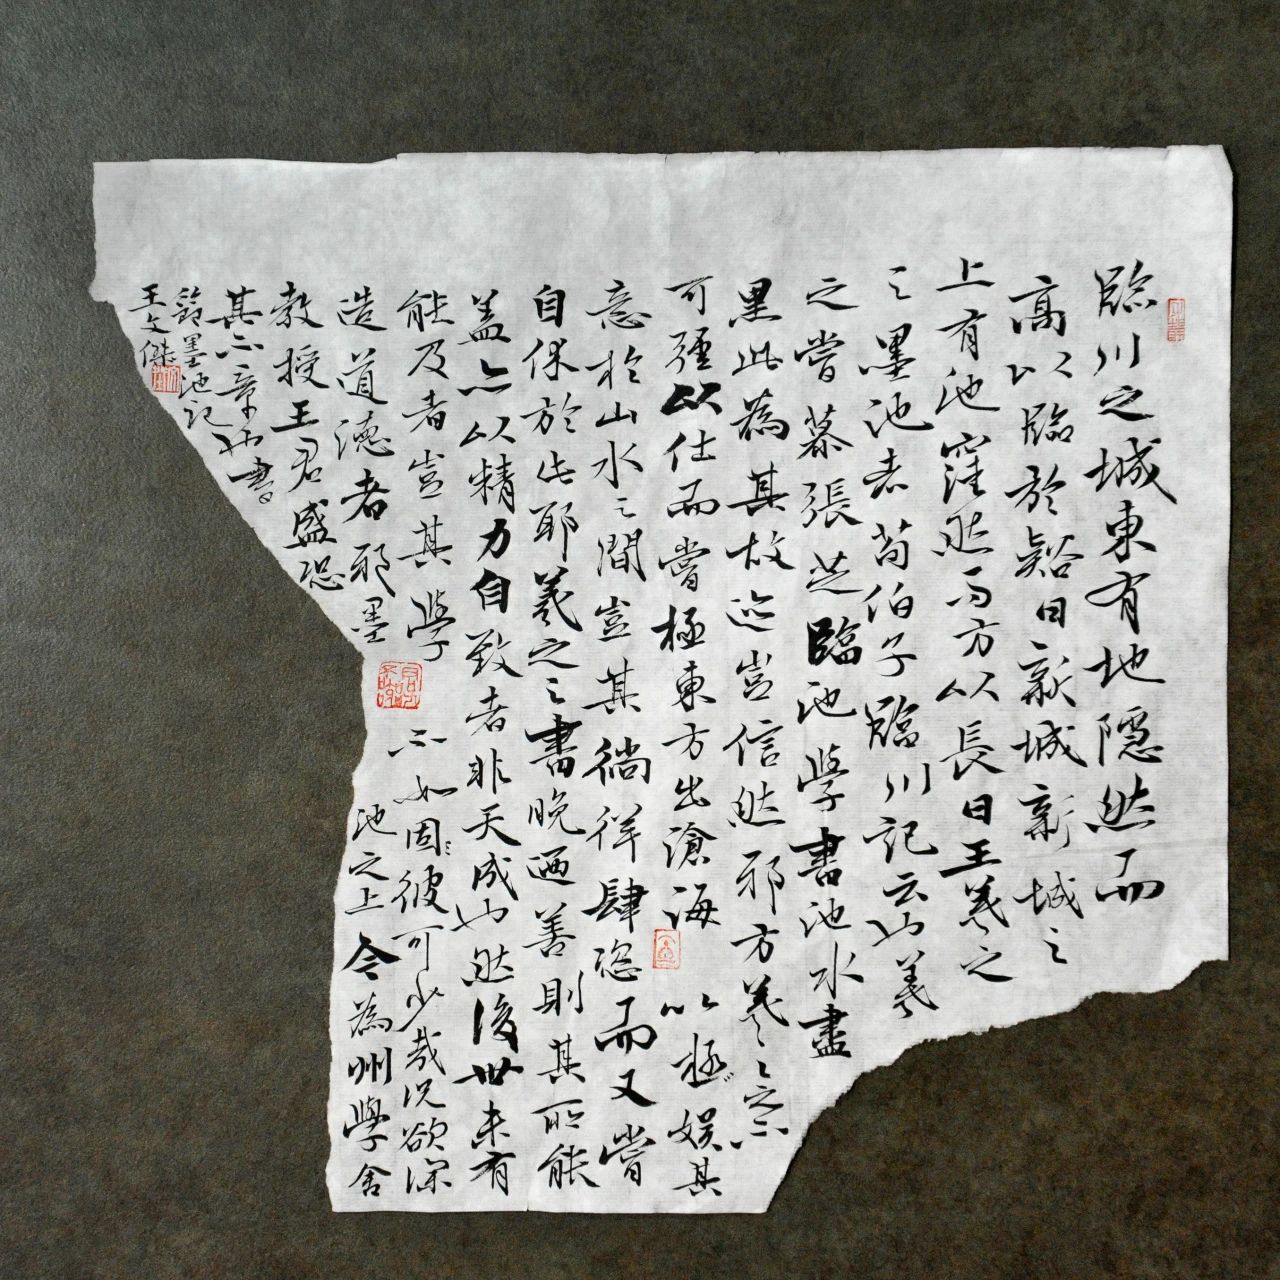 臨川之城東有地隱然而
高以臨於谿曰新城新城之
上有池窪然而方以長曰王羲之
之墨池者荀伯子臨川記云也羲
之嘗慕張芝臨池學書池水盡
黑此為其故迹豈信然邪方羲之之不
可彊以仕而嘗極東方出滄海以極娛其
意於山水之間豈其徜徉肆恣而又嘗
自休於此耶羲之之書晚迺善則其所能
蓋亦以精力自致者非天成也然後世未有
能及者豈其學不如彼可少哉況欲深
造道德者邪墨池之上今為州學舍
教授王君盛恐
其不章也書
節墨池記
王文傑